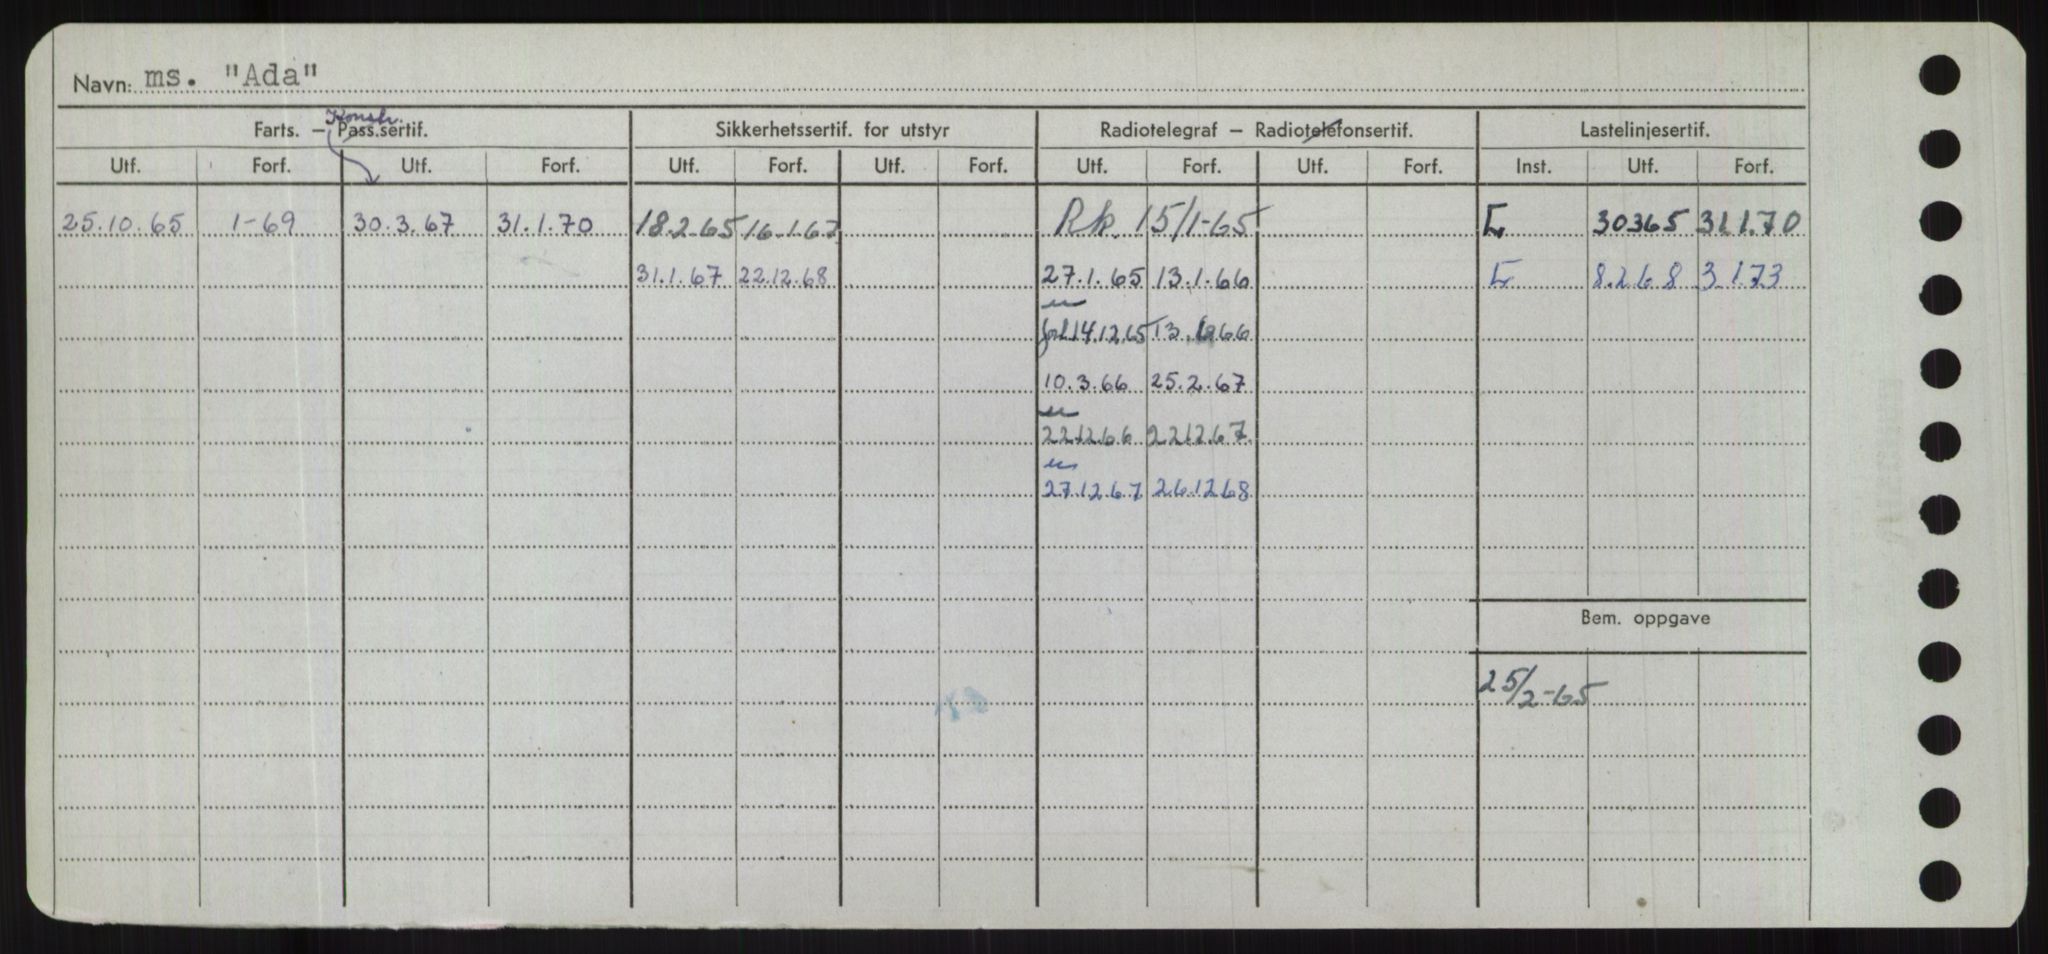 Navn: ms. "Ada"
Konstr.
Farts. – Pass.sertif. Sikkerhetssertif. for utstyr Radiotelegraf – Radiotelefonsertif. Lastelinjesertif.
Utf. Forf. Utf. Forf. Utf. Forf. Utf. Forf. Utf. Forf. Utf. Forf. Inst. Utf. Forf.
25.10.65 1-69 30.3.67 31.1.70 18.2.65 16.1.67 Rk. 15/1-65 30365 31.1.70
31.1.67 22.12.68 27.1.65 13.1.66 8.268 3.1.73
14.12.65 13. 66
10.3.66 25.2.67
22.12.66 22.12.67
27.12.67 26.12.68
Bem. oppgave
25/2-65